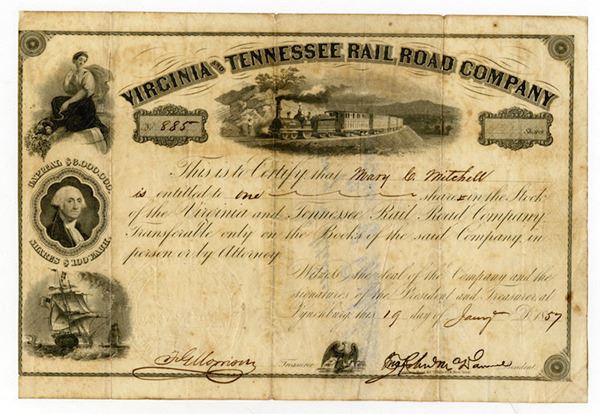 VIRGINIA AND TENNESSEE RAIL ROAD COMPANY
No. 885
Shares
CAPITAL $3,000,000.
SHARES $100 EACH.
This is to Certify that Mary C. Mitchell
is entitled to one shares in the Stock
of the Virginia and Tennessee Rail Road Company
Transferable only on the Books of the said Company, in
person or by Attorney
Witness the Seal of the Company and the
signatures of the President and Treasurer at
Lynchburg this 19 day of Jany. D 1857
Treasurer
President